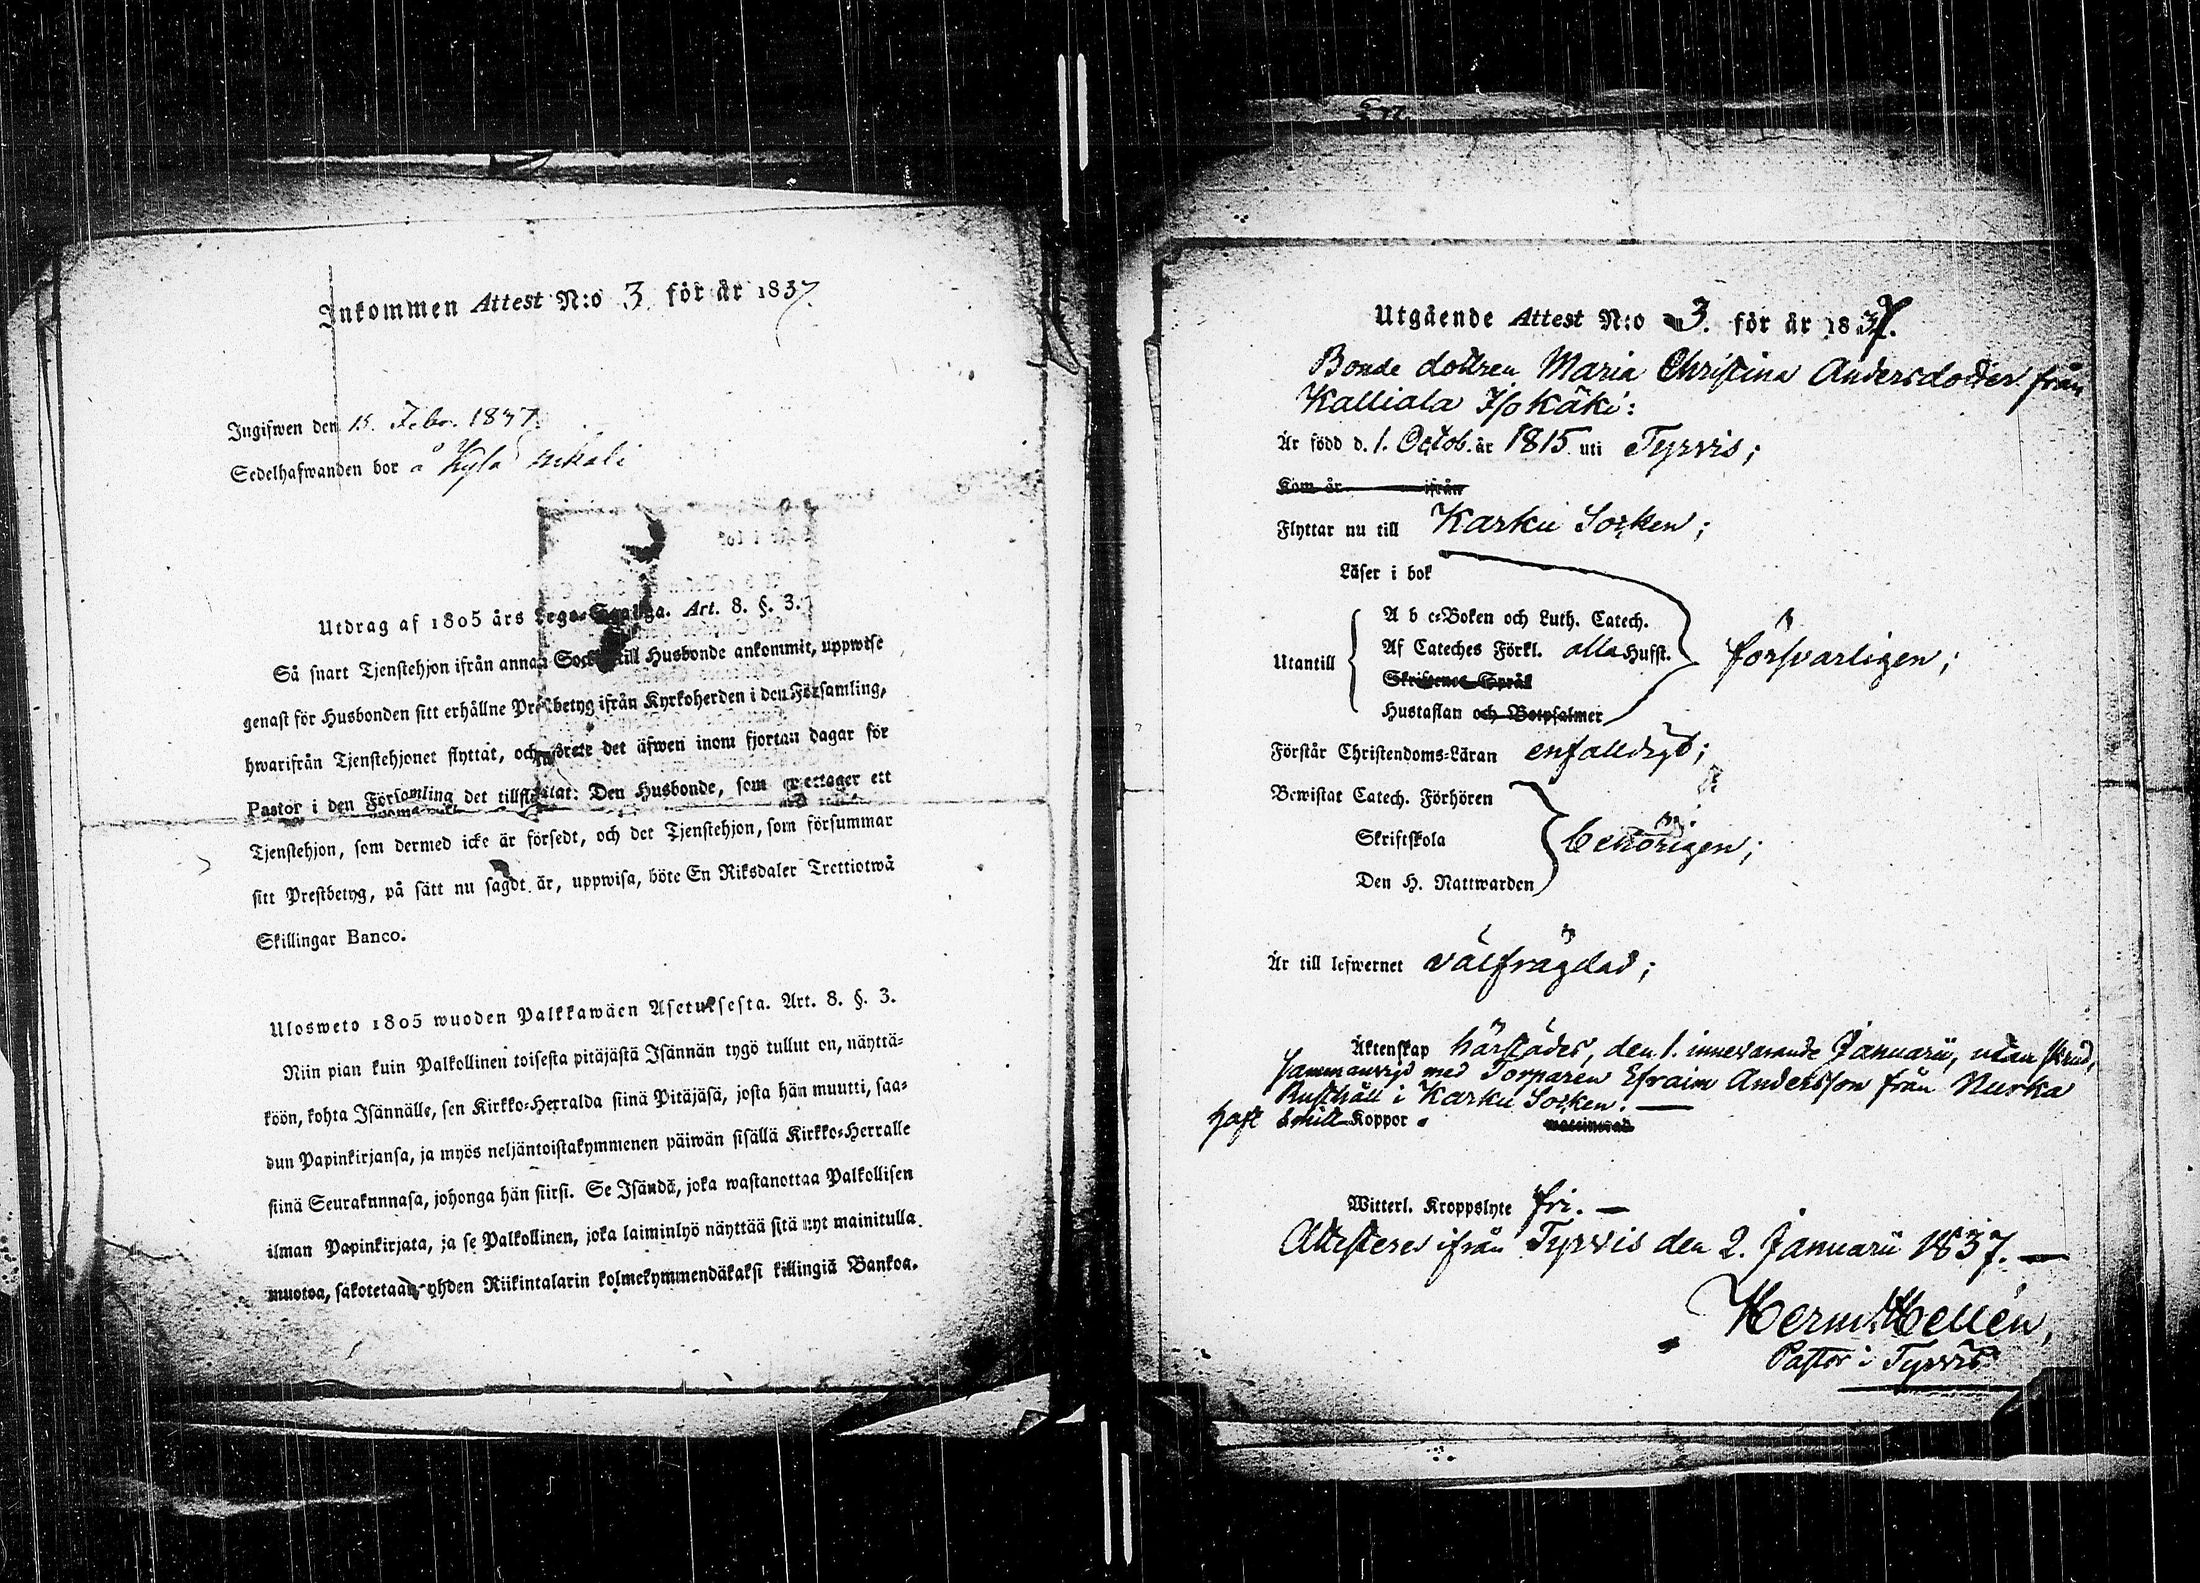 Inkommen Attest N:o 3 för år 1837.
Ingifwen den 15. Febr. 1837.
Sedelhafwanden bor å Kyla
Utdrag af 1805 års Lego-Stadga. Art. 8. §. 3.
Så snart Tjenstehjon ifrån annan Socken till Husbonde ankommit, uppwise
genast för Husbonden sitt erhållne Prestbetyg ifrån Kyrkoherden i den Församling,
hwarifrån Tjenstehjonet flyttat, och det äfwen inom fjortan dagar för
Pastor i den Församling det tillflyttat: Den Husbonde, som emottager ett
Tjenstehjon, som dermed icke är försedt, och det Tjenstehjon, som försummar
sitt Prestbetyg, på sätt nu sagdt är, uppwisa, böte En Riksdaler Trettiotwå
Skillingar Banco.
Ulosweto 1805 wuoden Palkkawäen Asetuksesta. Art. 8. §. 3.
Niin pian kuin Palkollinen toisesta pitäjästä Isännän tygö tullut on, näyttä-
köön, kohta Isännälle, sen Kirkko-Herralda siinä Pitäjäsä, josta hän muutti, saa-
dun Papinkirjansa, ja myös neljäntoistakymmenen päiwän sisällä Kirkko-Herralle
siinä Seurakunnasa, johonga hän siirsi. Se Isändä, joka wastanottaa Palkollisen
ilman Papinkirjata, ja se Palkollinen, joka laiminlyö näyttää sitä nyt mainitulla
muotoa, sakotetaan yhden Riikintalarin kolmekymmendäkaksi killingiä Bankoa.
Utgående Attest N:o 3. för år 1837.
Bonde dottren Maria Christina Andersdotter från
Kalliala Iso Käki:
Är född d. 1. Octob. år 1815 uti Tyrvis;
Kom år ifrån
Flyttar nu till Karku Socken;
Läser i bok
A b c-Boken och Luth. Catech.
Utantill Af Cateches Förkl. alla Hufst. försvarligen;
Skriftenes Språk
Hustaflan och Botpsalmer
Förstår Christendoms-Läran enfalldigt;
Bewistat Catech. Förhören
Skriftskola behörigen;
Den H. Nattwarden
Är till lefwernet välfrägdad;
Äktenskap härstädes, den 1. innevarande Januarii, utan skrud,
sammanvigd med Torparen Efraim Andersson från Nurka
Rusthåll i Karku Socken. —
haft Smitt Koppor.
Witterl. Kroppslyte fri. —
Attesteres ifrån Tyrvis den 2. Januarii 1837. —
Herm. Hellén,
Pastor i Tyrvis